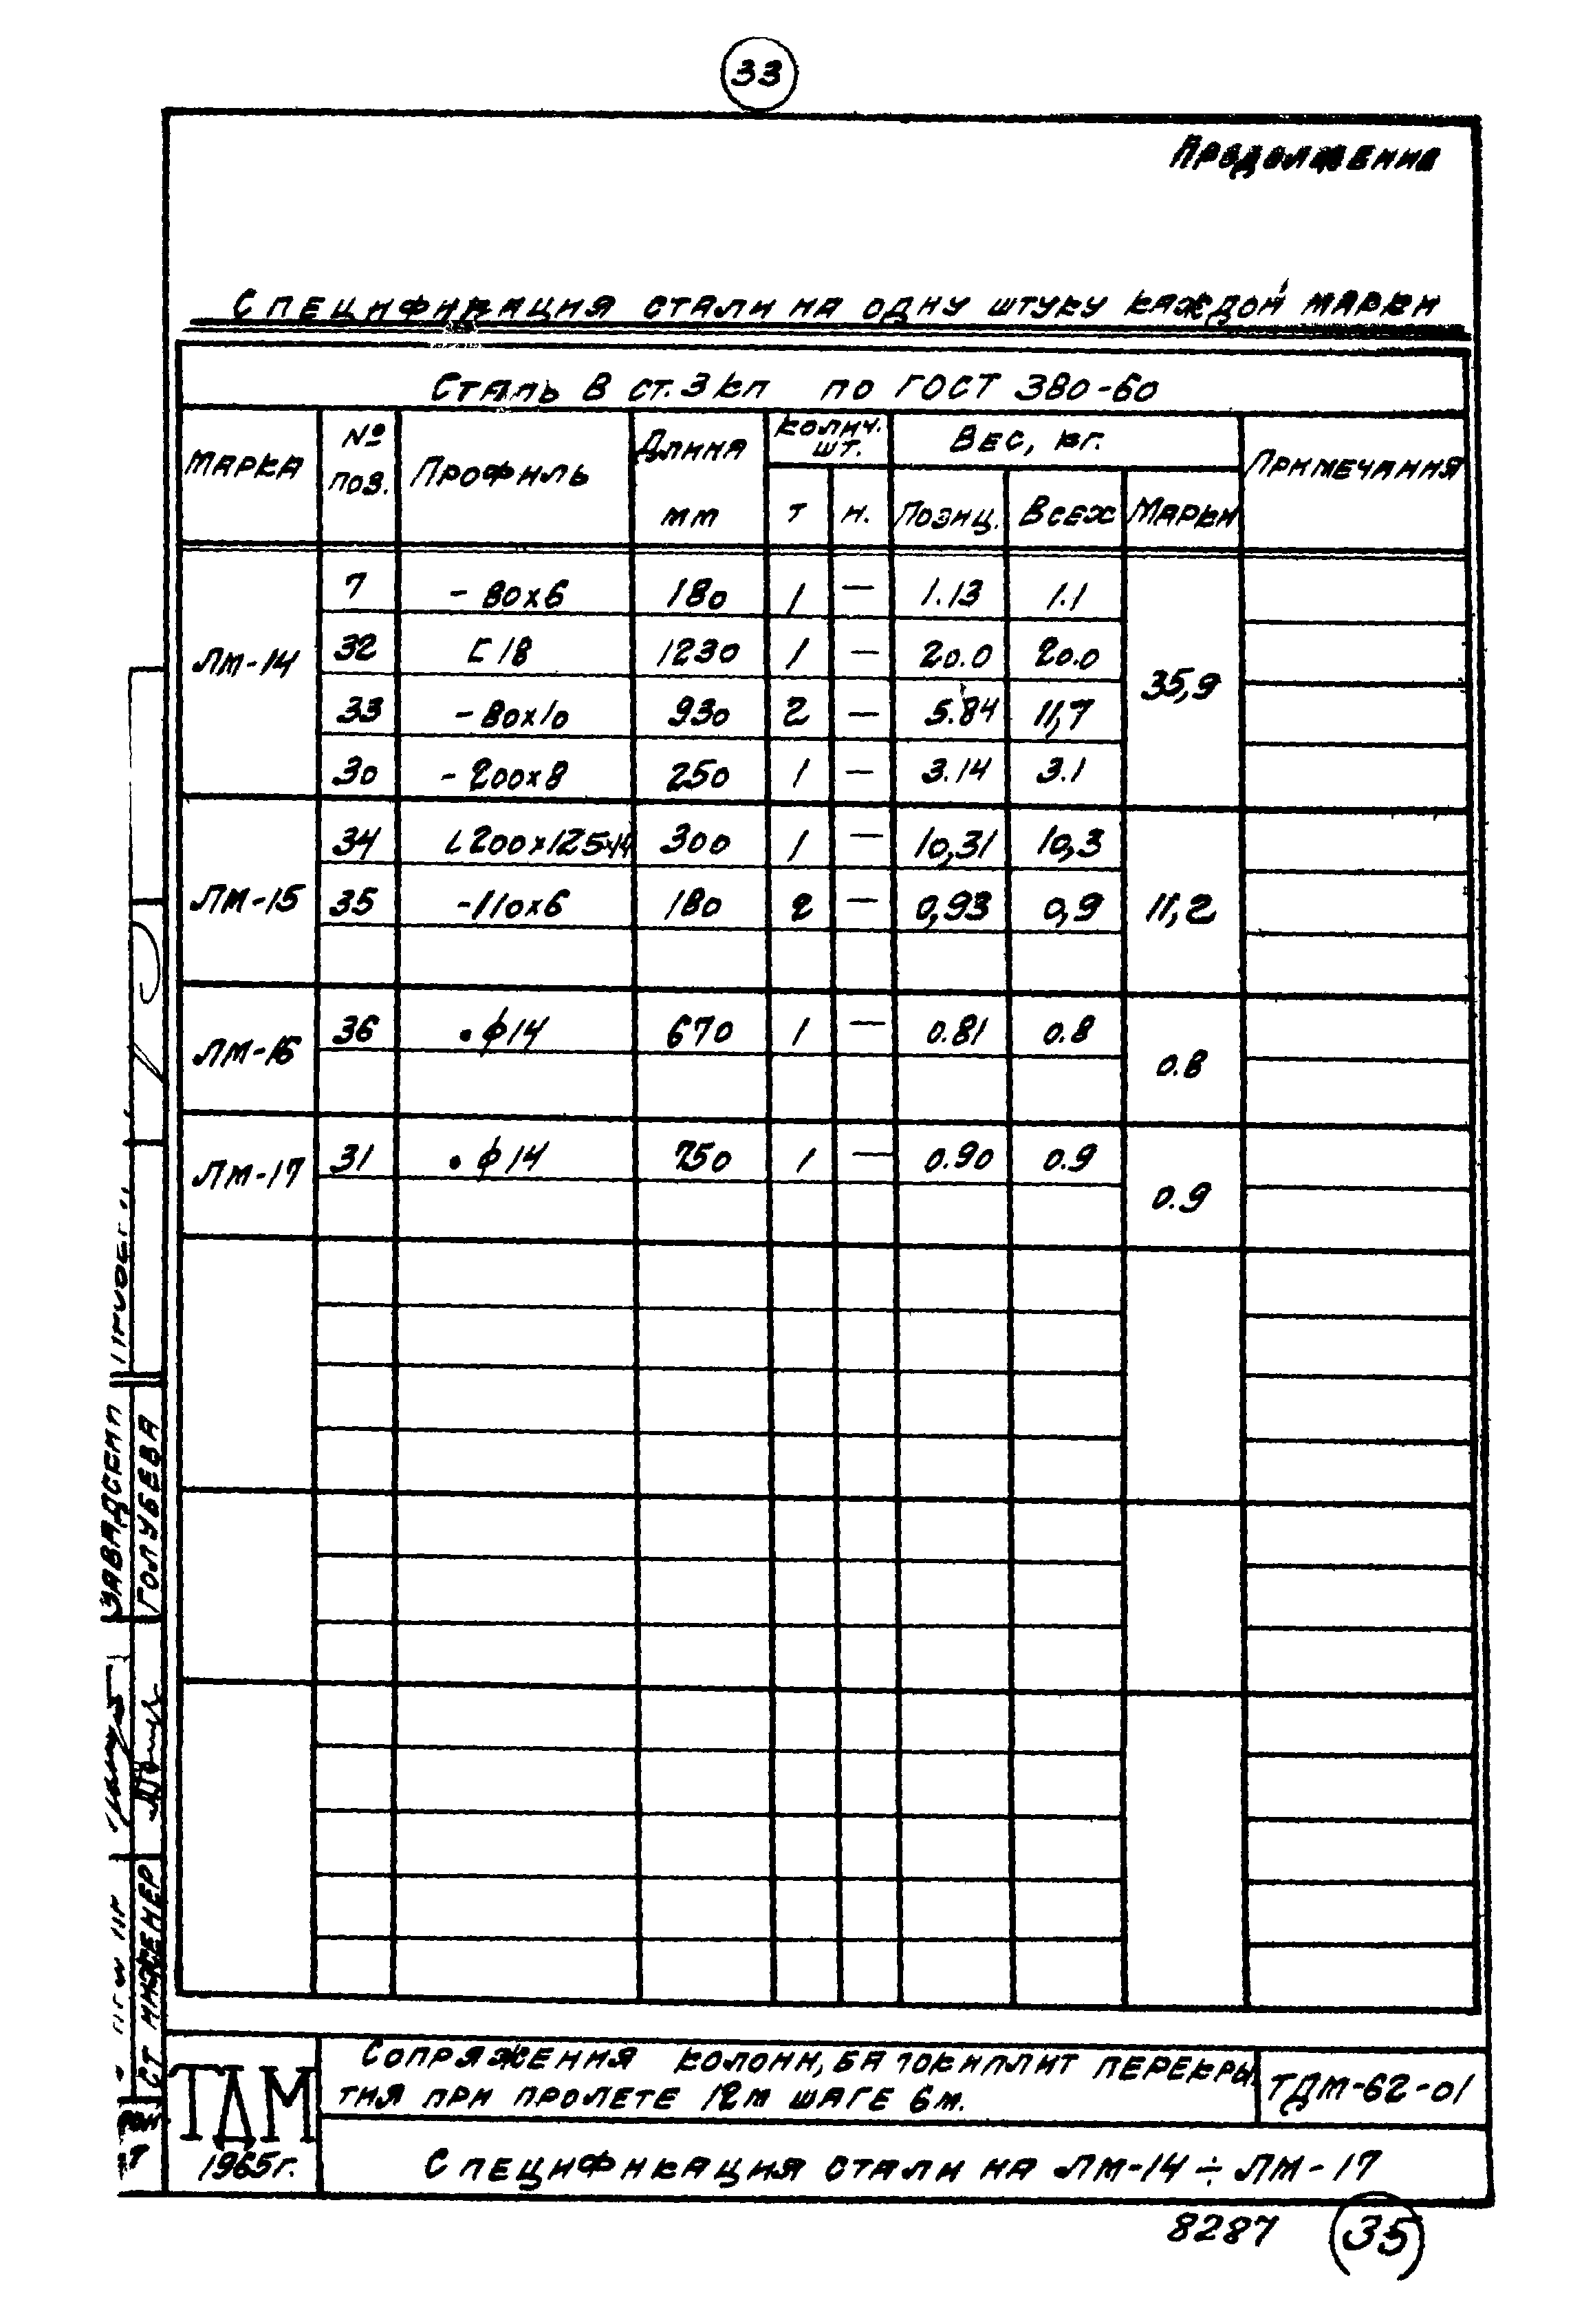 33
Продолжение
Спецификация стали на одну штуку каждой марки
Сталь В ст.3кп по ГОСТ 380-60
Марка № поз. Профиль Длина мм Колич. шт. Вес, кг. Примечания
т н. Позиц. Всех Марки
ЛМ-14 35,9
7 -80х6 180 1 — 1.13 1.1
32 [18 1230 1 — 20.0 20.0
33 -80х10 930 2 — 5.84 11,7
30 -200х8 250 1 — 3.14 3.1
ЛМ-15 11,2
34 L200х125х14 300 1 — 10,31 10,3
35 -110х6 180 2 — 0,93 0,9
ЛМ-16 0.8
36 •ф14 670 1 — 0.81 0.8
ЛМ-17 0.9
31 •ф14 750 1 — 0.90 0.9
Голубева
Ст инженер
ТДМ
1965г.
Сопряжения колонн, ба ток и плит перекры
тия при пролете 12м шаге 6м.
ТДМ-62-01
Спецификация стали на ЛМ-14 ÷ ЛМ-17
8287 35